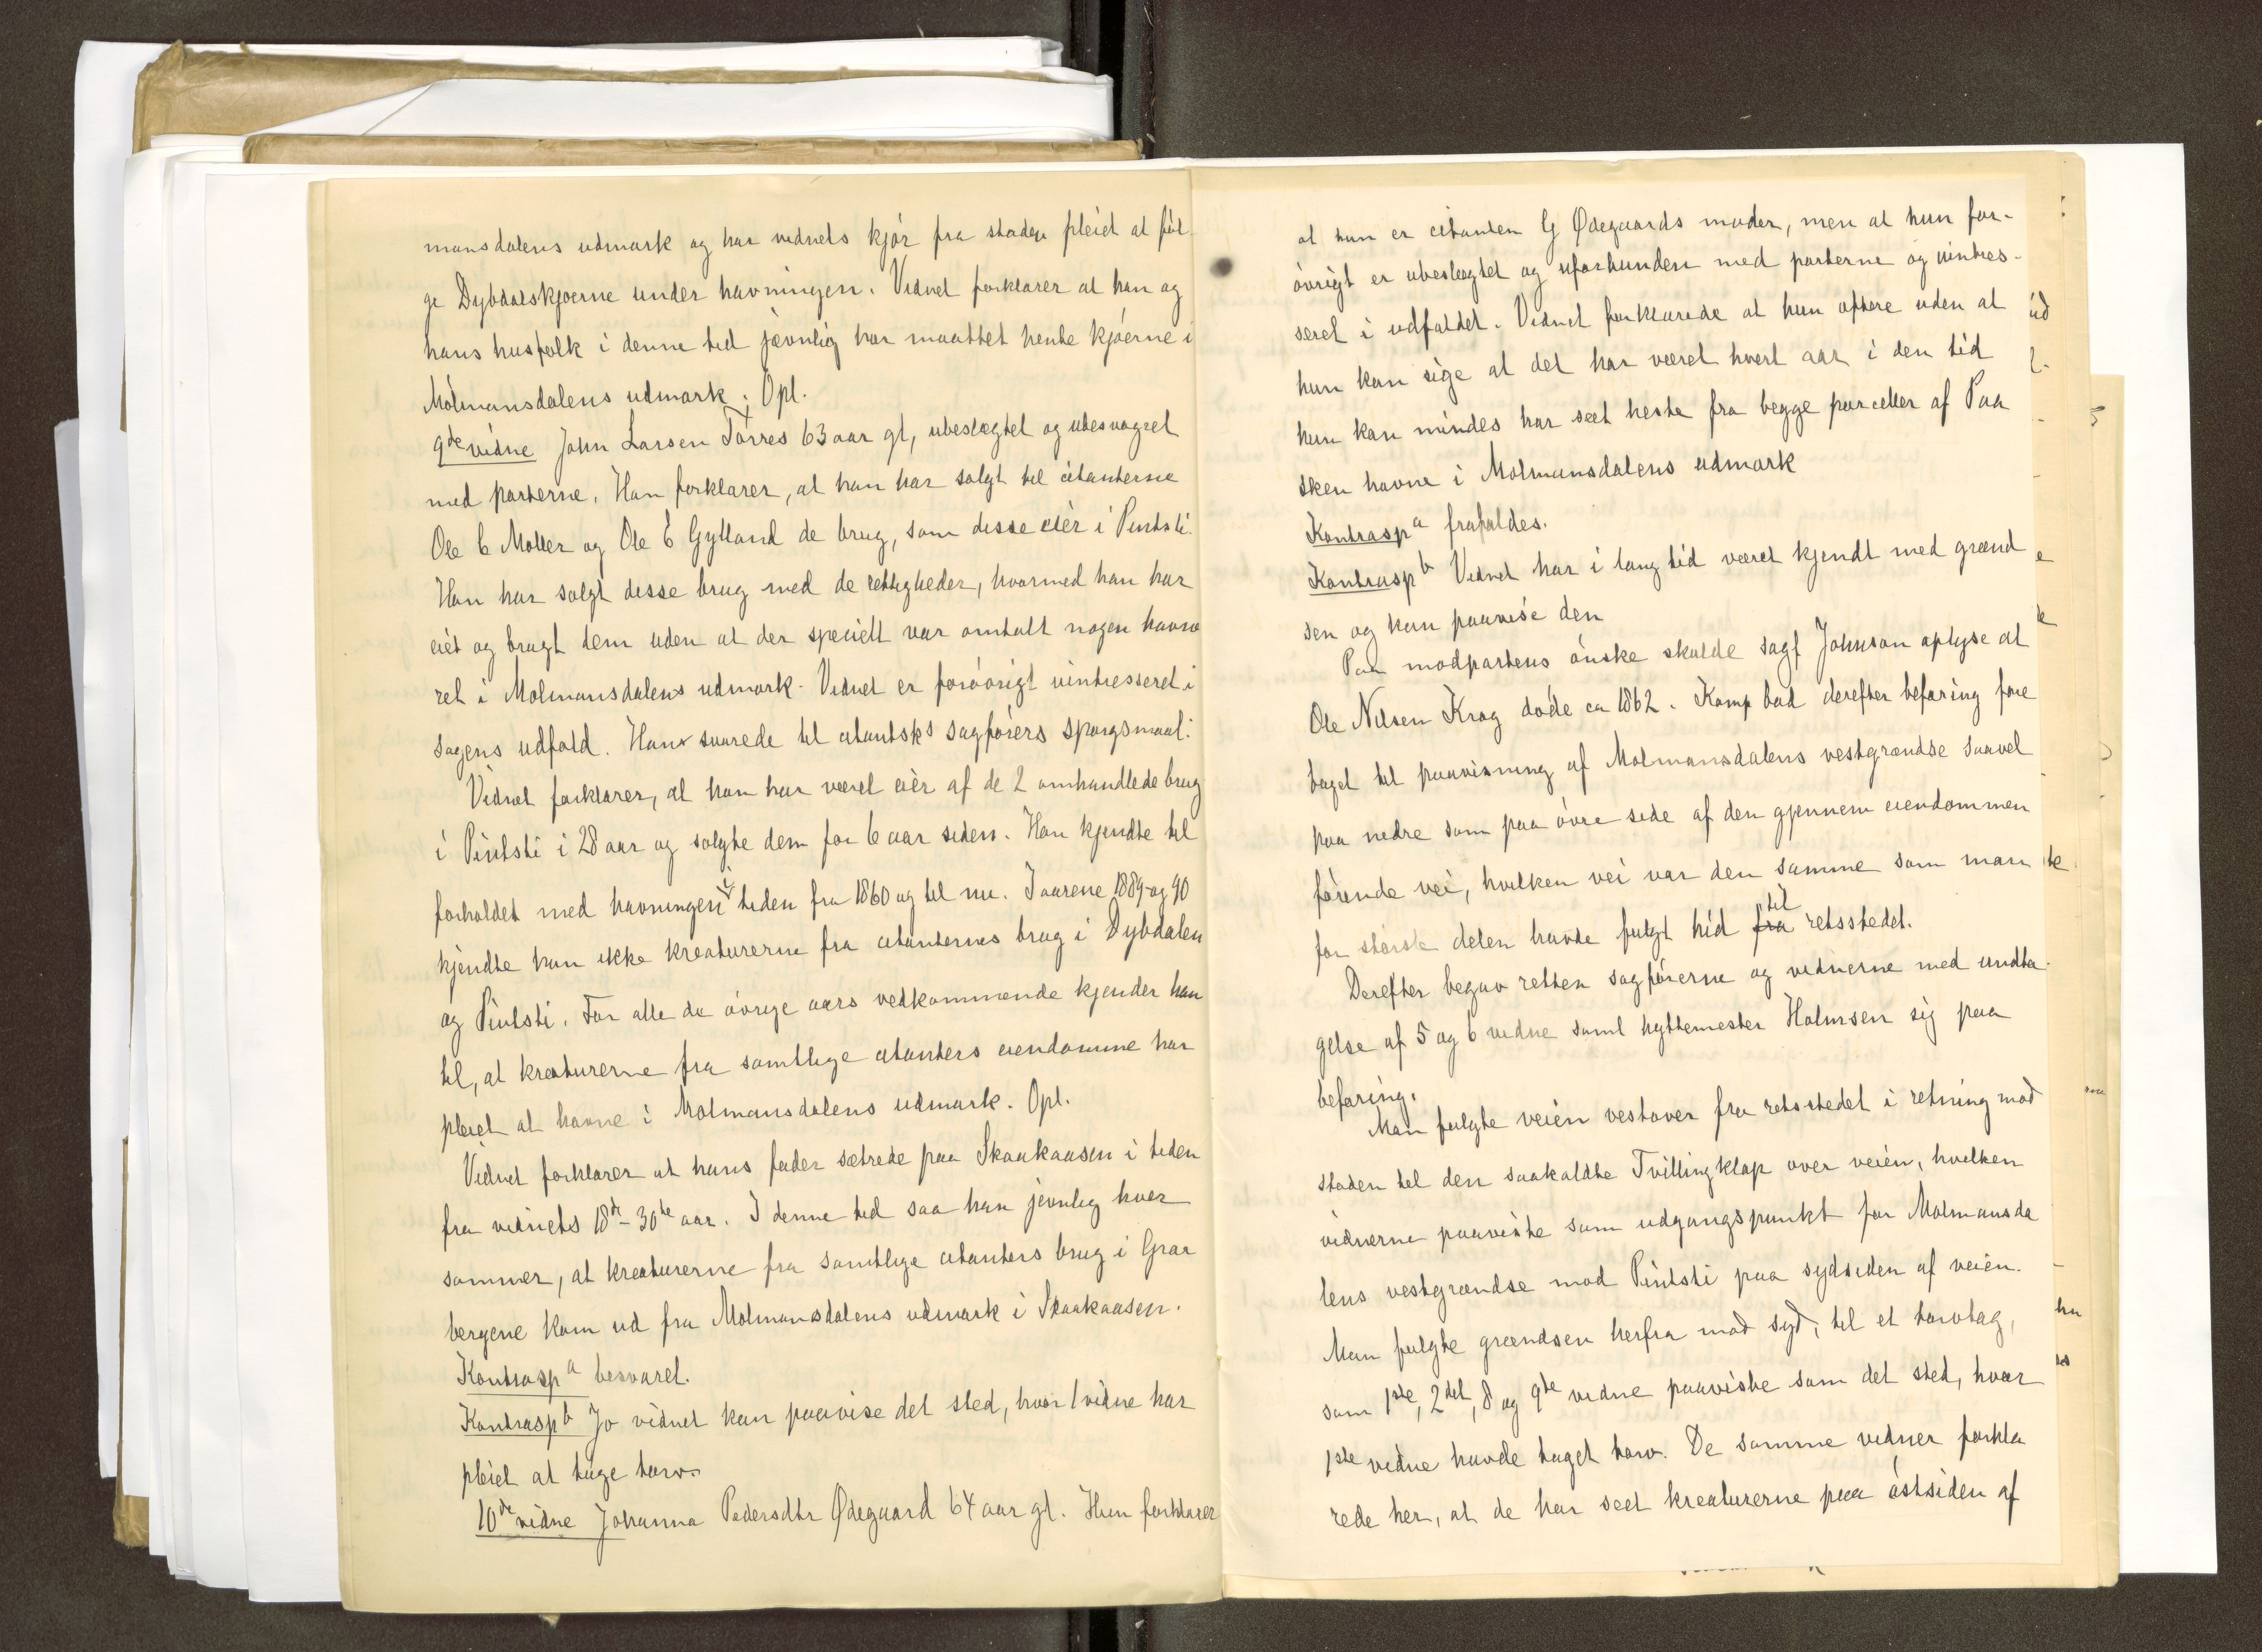 mansdalens udmark og har vidnets kjör fra staden pleiet at föl-
ge Dybdalskjoerne under havningen. Vidnet forklarer at han og
hans husfolk i denne tid jævnlig har maattet hente kjöerne i
Mölmansdalens udmark. Opl.
9de vidne John Larsen Törres 63 aar gl, ubeslægtet og ubesvogret
med parterne. Han forklarer, at han har solgt til citanterne
Ole C Möller og Ole E Gylland de brug, som disse eier i Pintsti.
Han har solgt disse brug med de rettigheder, hvormed han har
eiet og brugt dem uden at der specielt var omtalt nogen havne
ret i Molmansdalens udmark. Vidnet er forövrigt uintresseret i
sagens udfald. Han svarede til citantsks sagförers spörgsmaal:
Vidnet forklarer, at han har været eier af de 2 omhandlede brug
i Pintsti i 28 aar og solgte dem for 6 aar siden. Han kjendte til
forholdet med havningen i tiden fra 1860 og til nu. I aarene 1889 og 90
kjendte han ikke kreaturerne fra citanternes brug i Dybdalen
og Pintsti. For alle de övrige aars vedkommende kjender han
til, at kreaturerne fra samtlige citanters eiendomme har
pleiet at havne i Molmansdalens udmark. Opl.
Vidnet forklarer at hans fader sætrede paa Skaakaasen i tiden
fra vidnets 18de - 30te aar. I denne tid saa han jevnlig hver
sommer, at kreaturerne fra samtlige citanters brug i Graa
bergene kom ud fra Molmansdalens udmark i Skaakaasen.
Kontrasp a besvaret.
Kontrasp b Jo vidnet kan paavise det sted, hvor 1 vidne har
pleiet at tage torv.
10de vidne Johanna Pedersdtr Ødegaard 64 aar gl. Hun forklarer
at hun er citanten G Ødegaards moder, men at hun for-
övrigt er ubeslægtet og uforbunden med parterne og uintres-
seret i udfaldet. Vidnet forklarede at hun oftere uden at
hun kan sige at det har været hvert aar i den tid
hun kan mindes har seet heste fra begge parceller af Paa
sken havne i Molmansdalens udmark
Kontrasp a frafaldes.
Kontrasp b Vidnet har i lang tid været kjendt med grænd
sen og kan paavise den
Paa modpartens önske skulde sagf Johnson oplyse at
Ole Nilsen Krog döde ca 1862. Komp bad derefter befaring fore
taget til paavisning af Molmansdalens vestgrændse saavel
paa nedre som paa övre side af den gjennem eiendommen
förende vei, hvilken vei var den samme som man
for störste delen havde fulgt hid fra til retsstedet.
Derefter begav retten sagförerne og vidnerne med undta-
gelse af 5 og 6 vidne samt hyttemester Holmsen sig paa
befaring.
Man fulgte veien vestover fra retsstedet i retning mod
staden til den saakaldte Tvillingklop over veien, hvilken
vidnerne paaviste som udgangspunkt for Molmansda
lens vestgrændse mod Pintsti paa sydsiden af veien.
Man fulgte grændsen herfra mod syd, til et torvtag,
som 1ste, 2det, 8 og 9de vidne paaviste som det sted, hvor
1ste vidne havde taget torv. De samme vidner forkla
rede her, at de har seet kreaturerne paa östsiden af